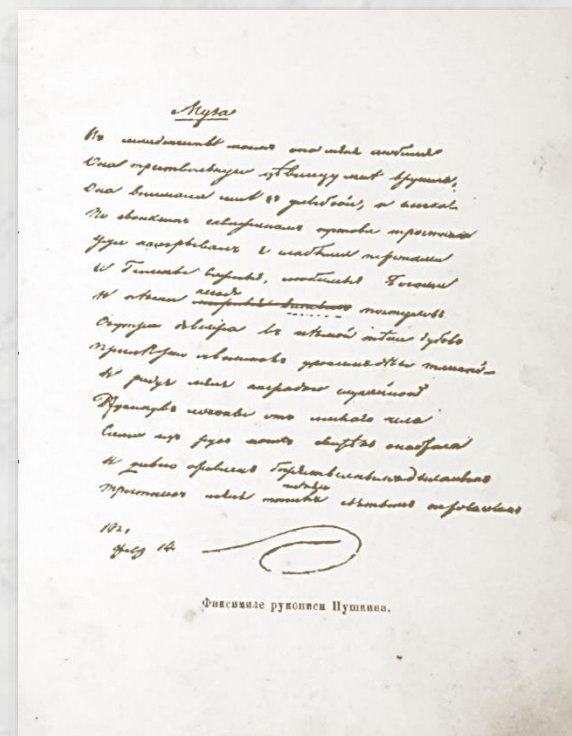 Муза
Въ младенчествѣ моемъ она меня любила
Она цѣвницу мнѣ вручила,
Она внимала мнѣ съ улыбкой, и слегка
По звонкимъ скважинамъ пустова тростника
Уже наигрывалъ я слабыми перстами
И Гимны важные, Богами
И пѣсни пастуховъ
Съ утра до вечера въ нѣмой тѣни дубовъ
Прилѣжно я внималъ урокамъ дѣвы тайной
И радуя меня наградою случайной
Откинувъ локоны отъ милаго чела
Сама изъ рукъ моихъ свирѣль она брала
И дивно оживленъ божественнымъ дыханьемъ
Тростникъ
182
14
Факсимиле рукописи Пушкина.